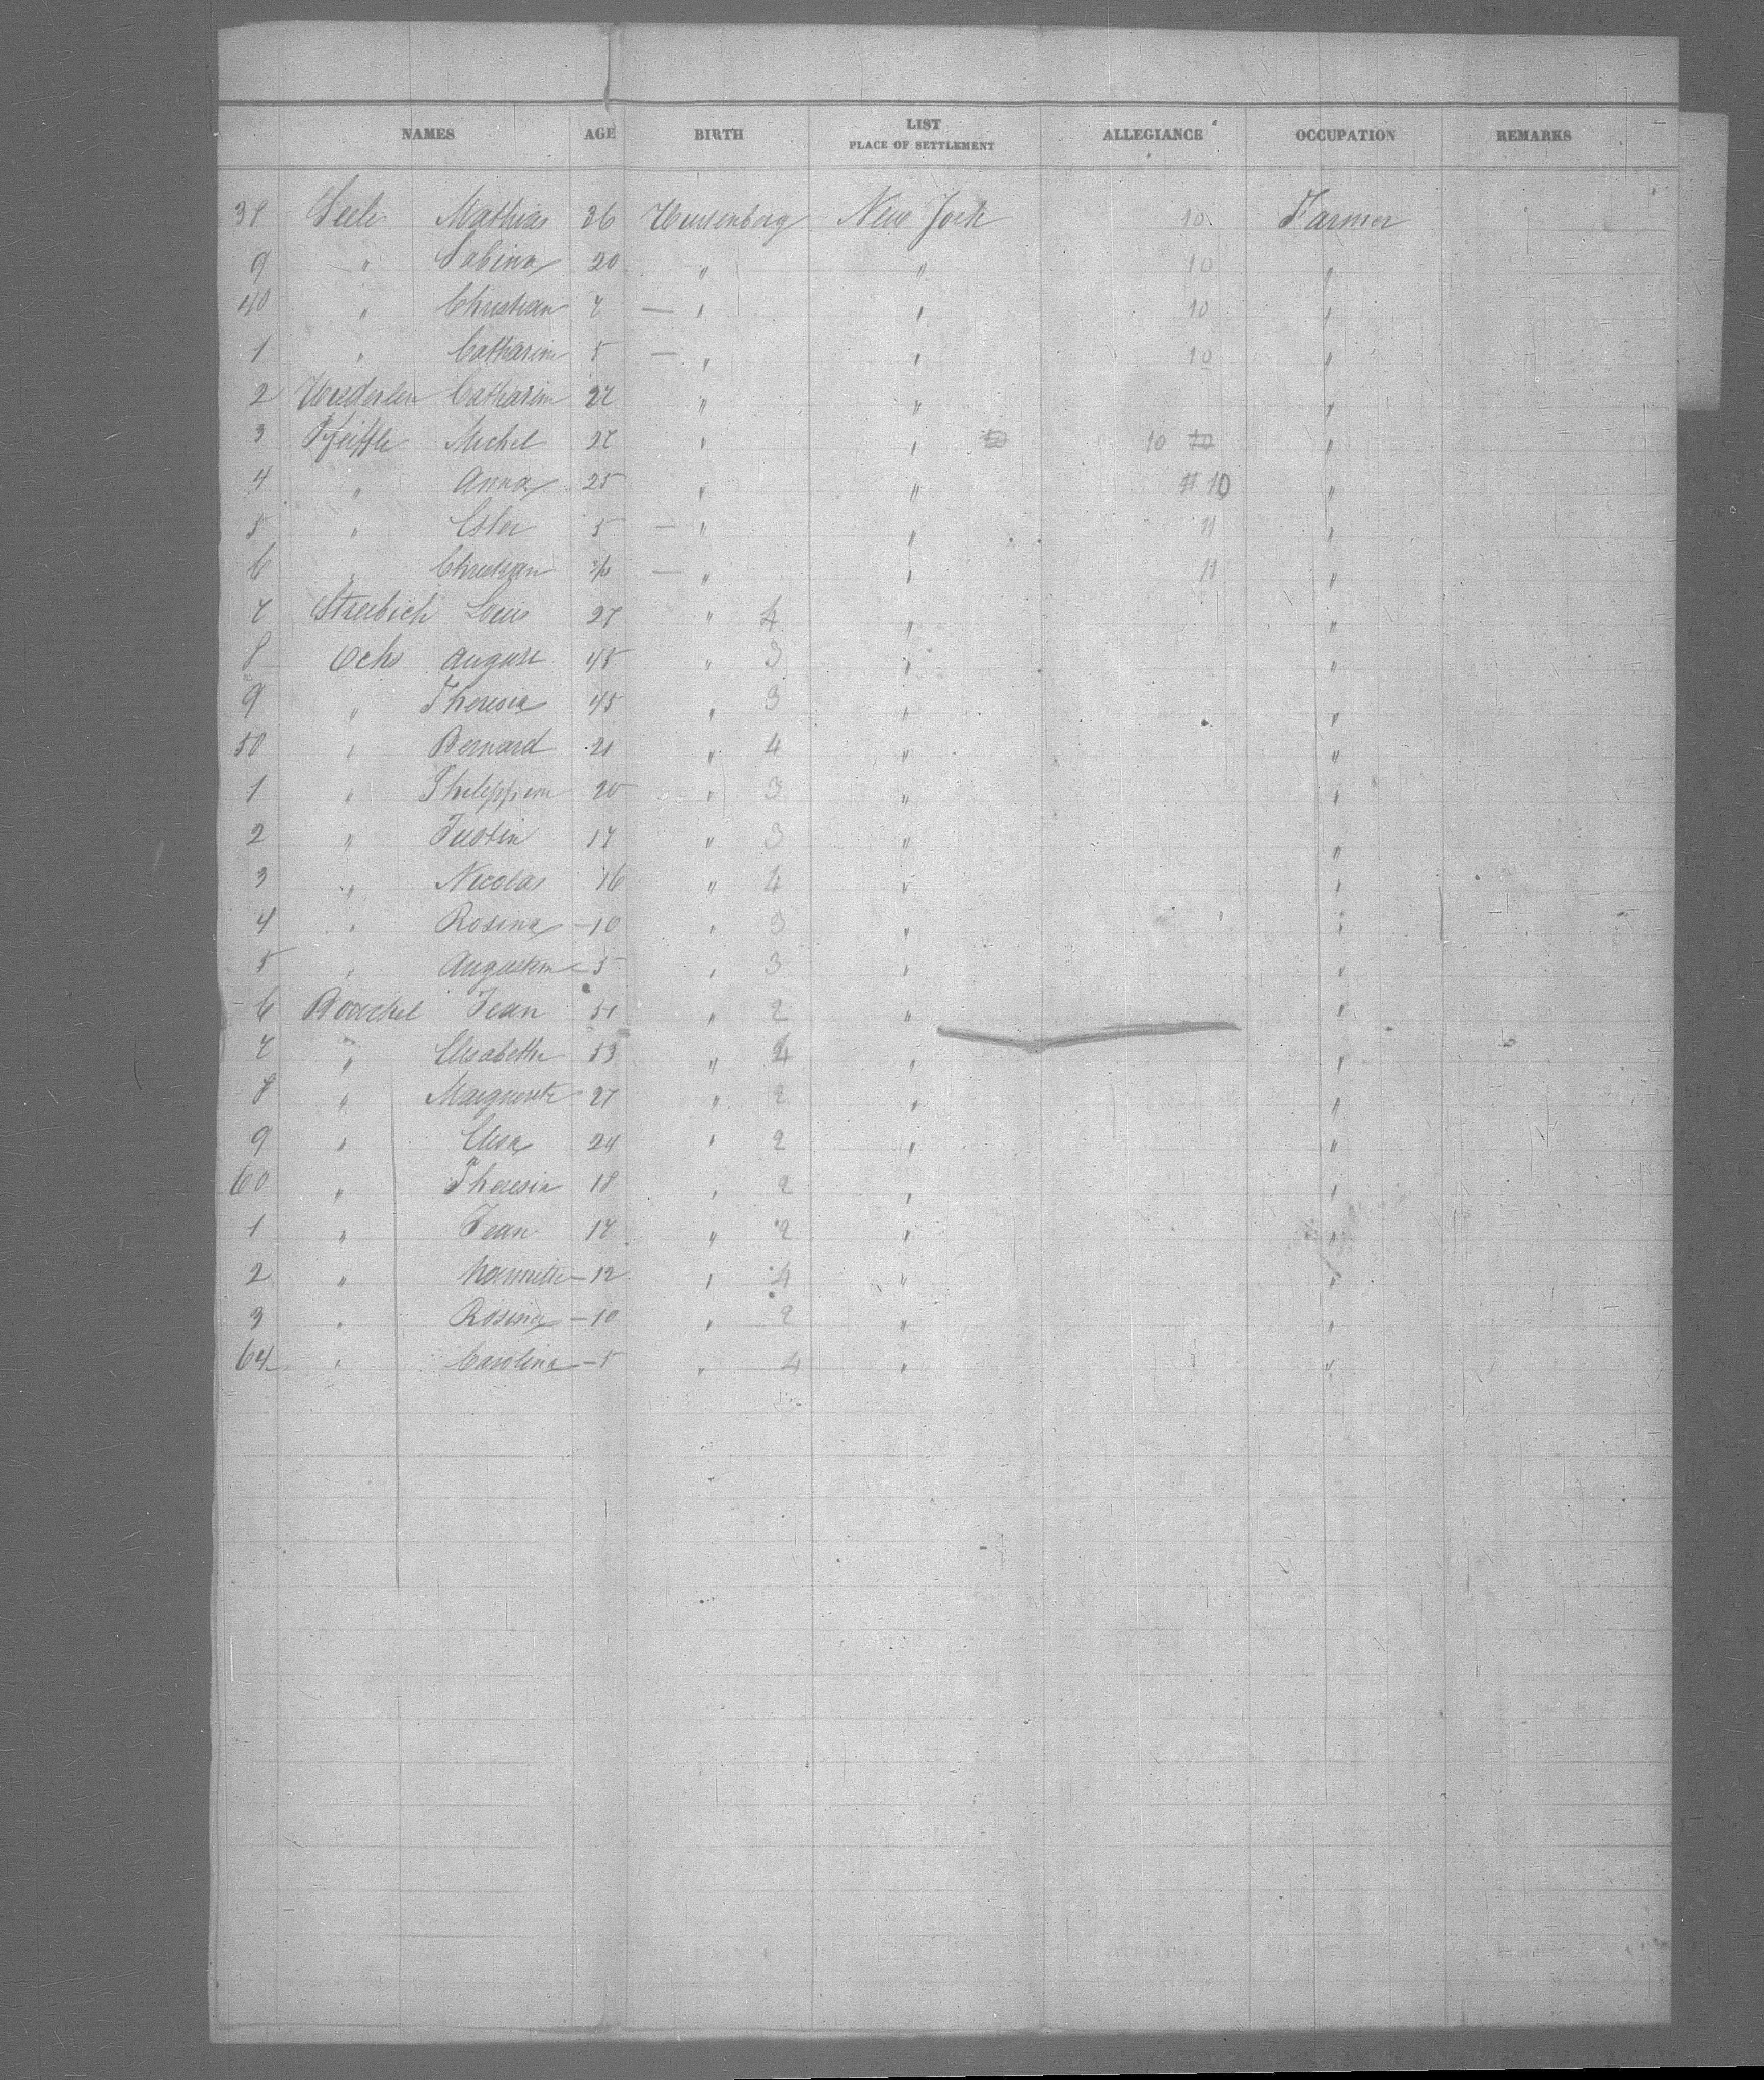 NAMES AGE BIRTH LIST PLACE OF SETTLEMENT ALLEGIANCE OCCUPATION REMARKS
38 Seele Mathias 36 Wurtenberg New York 10 Farmer
9 " Sabina 20 " " 10 "
40 " Christian 7 — " " 10 "
1 " Catharine 5 — " " 10 "
2 Catharine 27 " " "
3 Pfeiffle Michel 27 " " 10 10 "
4 " Anna 25 " " 10 "
5 " Ester 5 — " " 11 "
6 " Christian — " " 11 "
7 Streibich Louis 27 " 4 " "
8 Ochs August 45 " 3 " "
9 " Theresia 45 " 3 " "
50 " Bernard 21 " 4 " "
1 " Philippine 20 " 3 " "
2 " Justin 17 " 3 " "
3 " Nicolas 16 " 4 " "
4 " Rosina —10 " 3 " "
5 " Augustin —5 " 3 " "
6 Jean 51 " 2 " "
7 " Elisabethe 53 " 4 " "
8 " Marguerite 27 " 2 " "
9 " Elisa 24 " 2 " "
60 " Theresia 18 " 2 " "
1 " Jean 17 " 2 " "
2 " —12 " 4 " "
3 " Rosina —10 " 2 " "
64 " Carolina —5 " 4 " "